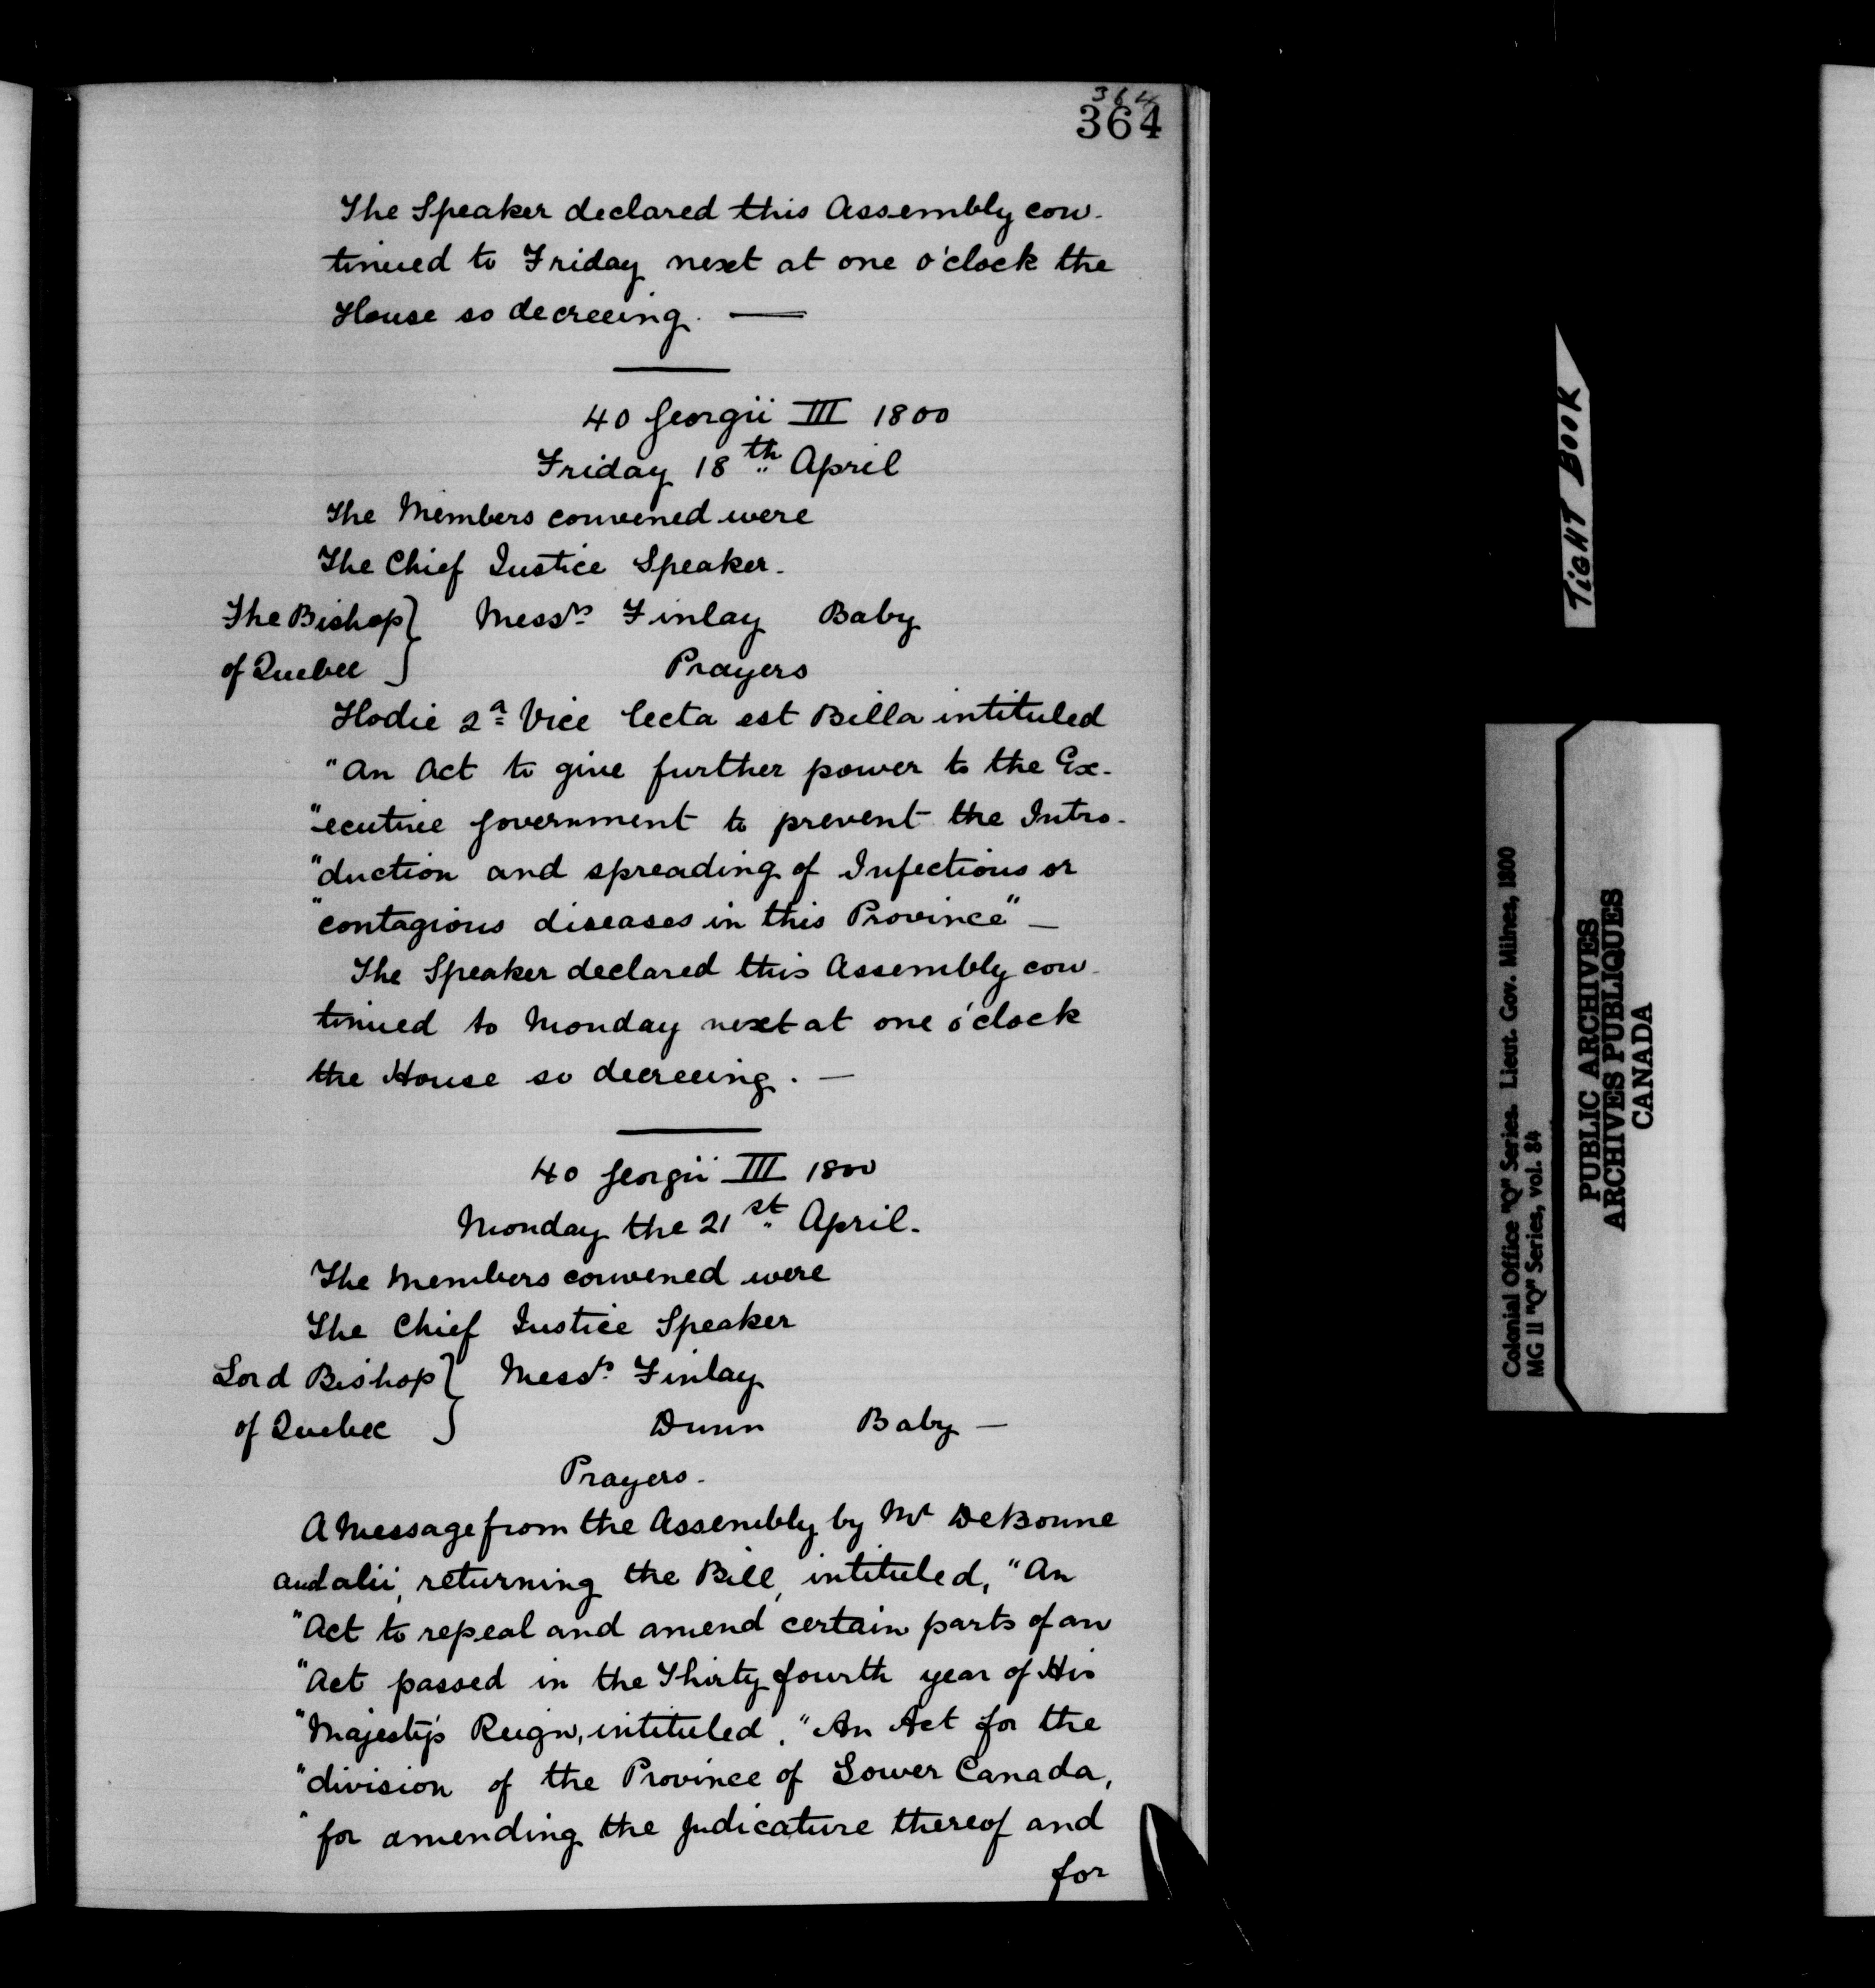 364
364
The Speaker declared this Assembly con-
tinued to Friday next at one o'clock the
House so decreeing. —
40 Georgii III 1800
Friday 18th April
The Members convened were
The Chief Justice Speaker.
The Bishop } Messrs Finlay Baby
of Quebec }
Prayers
Hodie 2a Vice lecta est Billa intituled
"An Act to give further power to the Ex-
"-ecutive Government to prevent the Intro-
"duction and spreading of Infectious or
"contagious diseases in this Province" —
The Speaker declared this Assembly con-
tinued to Monday next at one o'clock
the House so decreeing. —
40 Georgii III 1800
Monday the 21st April.
The Members convened were
The Chief Justice Speaker
Lord Bishop } Messrs Finlay
of Quebec } Dunn Baby —
Prayers.
A Message from the Assembly by Mr DeBonne
and alii, returning the Bill, intituled, "An
"Act to repeal and amend certain parts of an
"Act passed in the Thirty fourth year of His
"Majesty's Reign, intituled, "An Act for the
"division of the Province of Lower Canada,
"for amending the Judicature thereof and
for
TIGHT BOOK
Colonial Office "Q" Series. Lieut. Gov. Milnes, 1800
MG 11 "Q" Series, vol. 84
PUBLIC ARCHIVES
ARCHIVES PUBLIQUES
CANADA